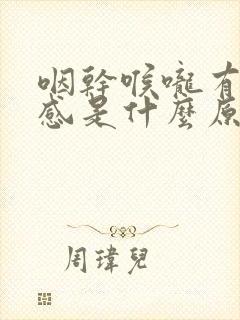 咽幹喉嚨有
感是什麼原
周瑋兒